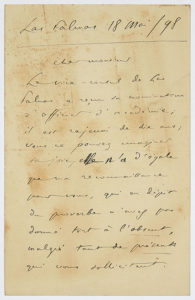 Las Palmas 18 Mai / 98
cher monsieur
Le vice-consul de Las
Palmas a reçu sa nomination
d'officier d'académie,
il est rajeuni de dix ans,
vous ne pouvez imaginer
sa joie, elle n'a d'égale
que sa reconnaissance
pour vous, qui en dépit
du proverbe n'avez pas
donné tort à l'absent,
malgré tant de présents
qui vous sollicitent.